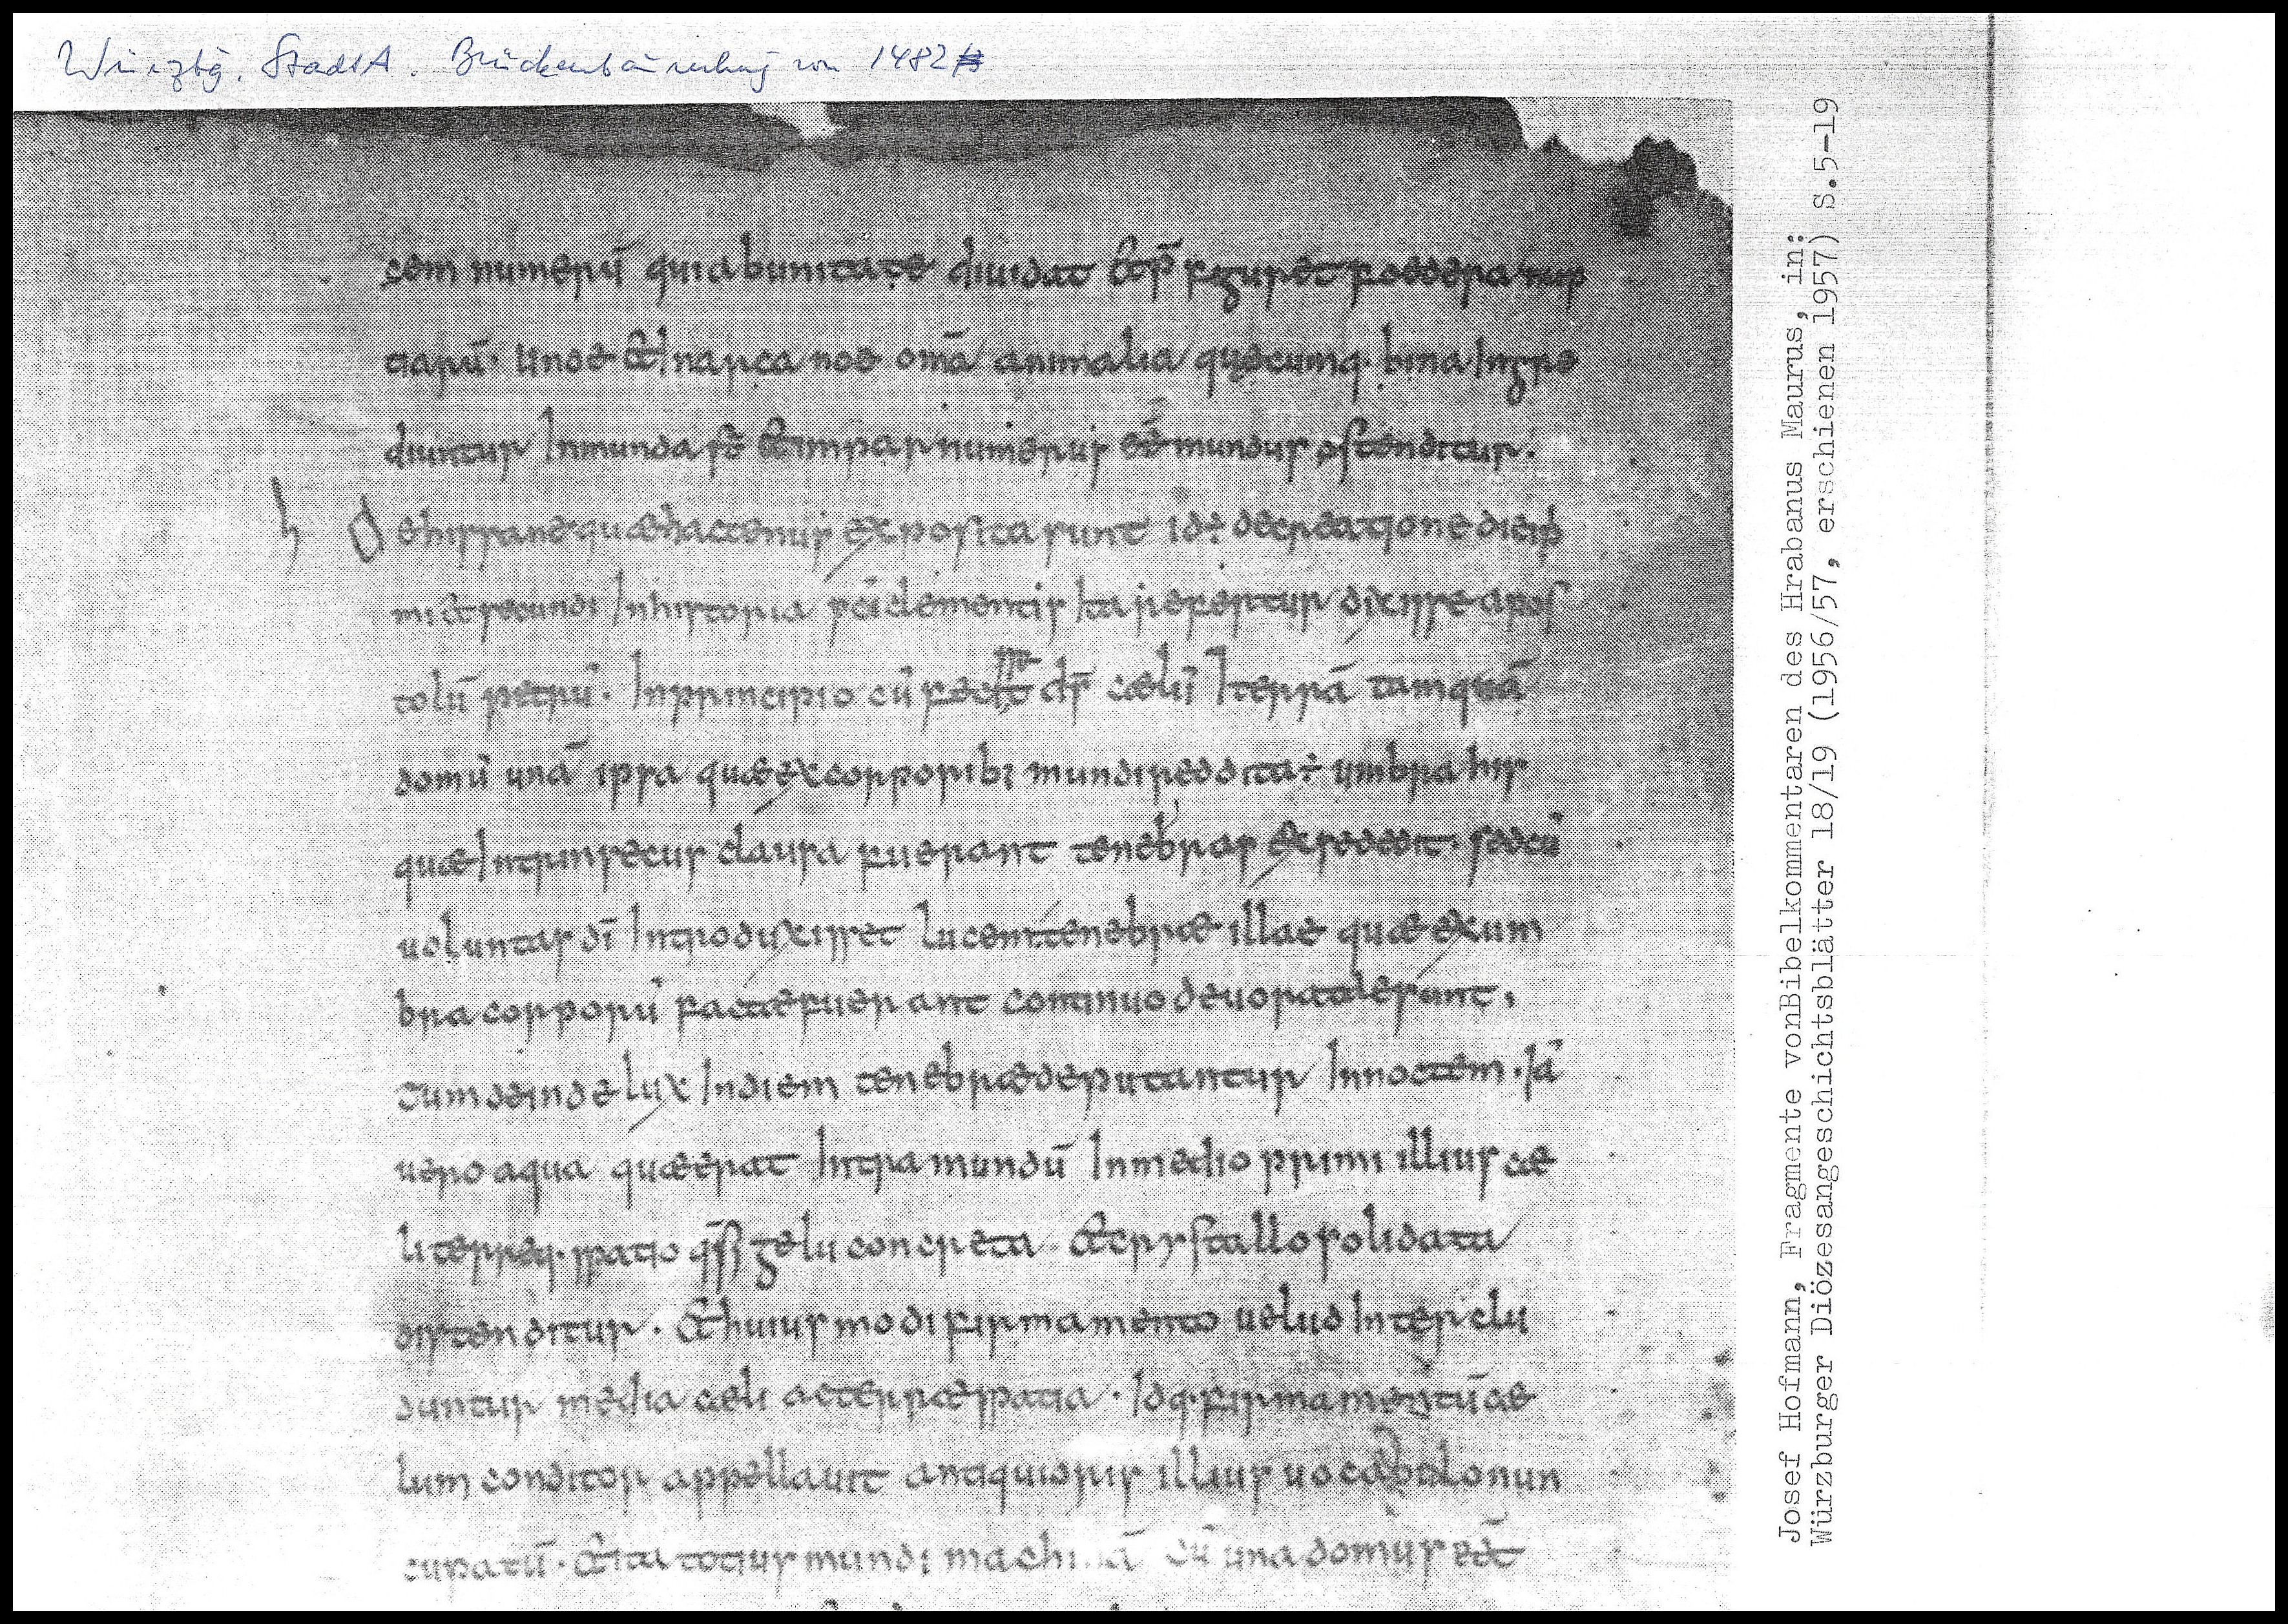 Würzbg. StadtA. Brückenbaurechnung von 1482
cem numerū qui ab unitate diuidat & rp̄ figuret foedera nup
tiarū. Unde &̄ In arca noe om̄a animalia quęcumq· bina Ingre
diuntur Inmunda s̄t & impar numerus eē mundus ostenditur.
h De his sane quæ hactenus exposita sunt id ÷ de creatione diei p
mi & secundi In historia sc̄i clementis Ita refertur dixisse apos
tolū petrū. In principio cū fecisset d̄s cælū & terrā tamquā
domū unā ipsa quæ ex corporibꝫ mundi reddita ÷ umbra his
quæ Intrinsecus clausa fuerant tenebras ex se dedit. sed cū
uoluntas dī Introduxisset lucem tenebræ illae quæ ex um
bra corporū factae fuerant continuo deuoratae sunt.
Tum deinde lux In diem tenebræ deputantur In noctem. Iā
uero aqua quæ erat Intra mundū In medio primi illius cæ
li terreq· spatio q̄si gelu concreta & crystallo solidata
distenditur. & huiusmodi firmamento uelud Interclu
duntur media cæli ac terræ spatia. Idq· firmamentū cæ
lum conditor appellauit antiquioris illius uocabulo nun
cupatū. & ita totius mundi machi nā cū una domus eēt
Josef Hofmann, Fragmente vonBibelkommentaren des Hrabanus Maurus, in:
Würzburger Diözesangeschichtsblätter 18/19 (1956/57, erschienen 1957) S.5-19